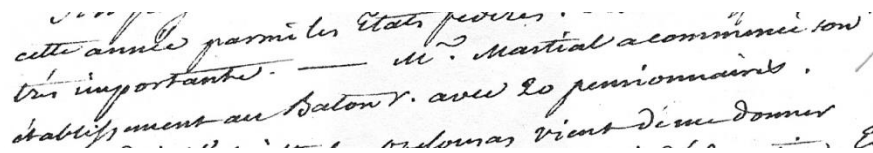 cette année parmi les Etats féderés.
très importante. — Mr. Martial a commencé son
établissement au Baton r. avec 20 pensionnaires.
Opelousas vient de me donner